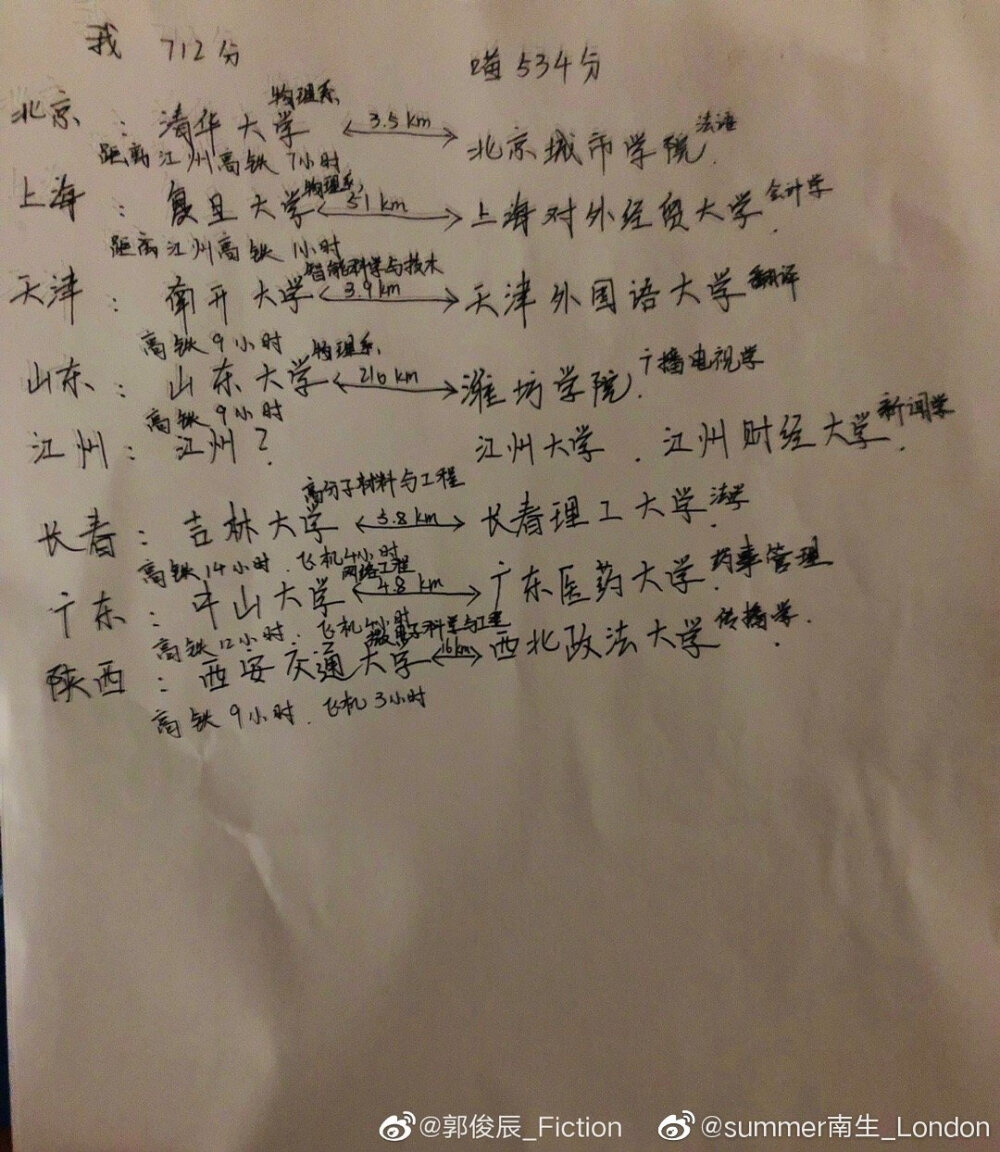 我 712分 喵 534分
物理系
北京：清华大学 3.5 km 北京城市学院 法语
距离江州高铁 7小时
物理系
上海：复旦大学 51 km 上海对外经贸大学 会计学
距离江州高铁 1小时
智能科学与技术
天津：南开大学 3.9 km 天津外国语大学 翻译
高铁 9小时
物理系
山东：山东大学 216 km 潍坊学院 广播电视学
高铁 9小时
江州：江州？ 江州大学 . 江州财经大学 新闻学
高分子材料与工程
长春：吉林大学 5.8 km 长春理工大学 法学
高铁14小时 . 飞机4小时
网络工程
广东：中山大学 4.8 km 广东医药大学 药事管理
高铁12小时 . 飞机4小时
科学与工程
陕西：西安交通大学 16km 西北政法大学 传播学
高铁 9小时 . 飞机 3小时
@郭俊辰_Fiction @summer南生_London